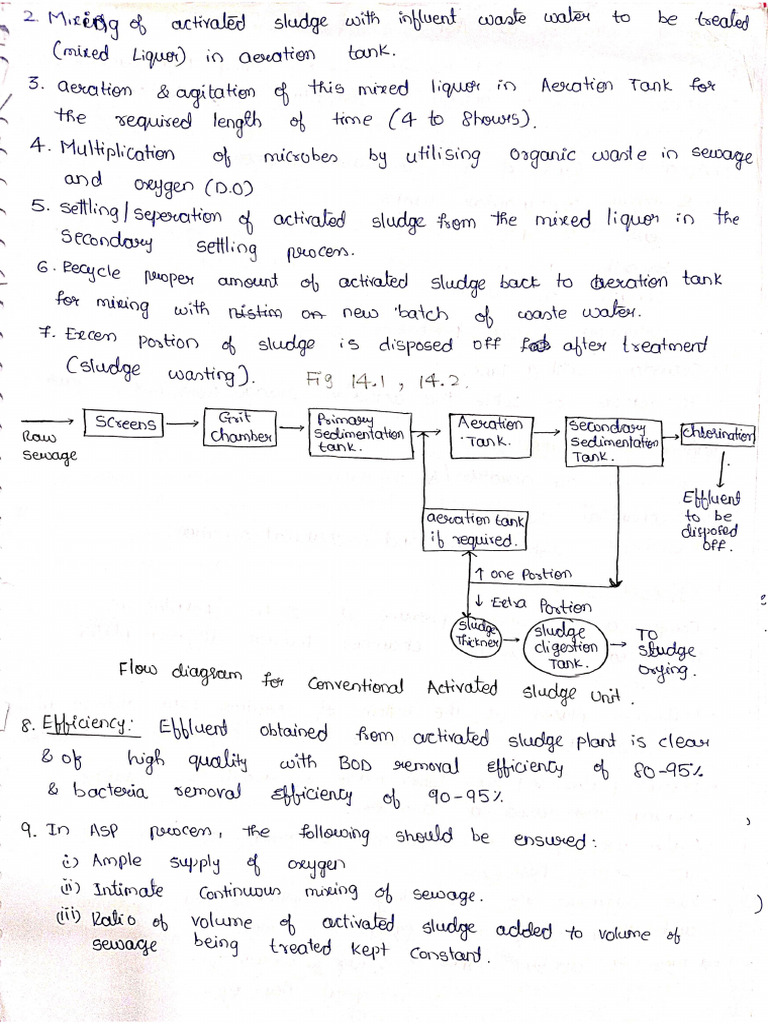 2. Mixing of activated sludge with influent waste water to be treated
(mixed Liquor) in aeration tank.
3. aeration & agitation of this mixed liquor in Aeration Tank for
the required length of time (4 to 8hours).
4. Multiplication of microbes by utilising organic waste in sewage
and oxygen (D.O)
5. settling/seperation of activated sludge from the mixed liquor in the
secondary settling process.
6. Recycle proper amount of activated sludge back to aeration tank
for mixing with new batch of waste water.
7. Excess portion of sludge is disposed off after treatment
(sludge wasting). Fig 14.1, 14.2.
Raw
sewage
Screens
Grit
chamber
Primary
sedimentation
tank.
Aeration
Tank.
secondary
sedimentation
Tank.
chlorination
Effluent
to be
disposed
off.
aeration tank
if required.
↑ one Portion
↓ Extra Portion
Sludge
Thickner
sludge
digestion
Tank.
TO
sludge
drying.
Flow diagram for Conventional Activated sludge Unit.
8. Efficiency: Effluent obtained from activated sludge plant is clear
& of high quality with BOD removal efficiency of 80-95%
& bacteria removal efficiency of 90-95%.
9. In ASP process, the following should be ensured:
i) Ample supply of oxygen
(ii) Intimate continuous mixing of sewage.
(iii) Ratio of volume of activated sludge added to volume of
sewage being treated kept constant.